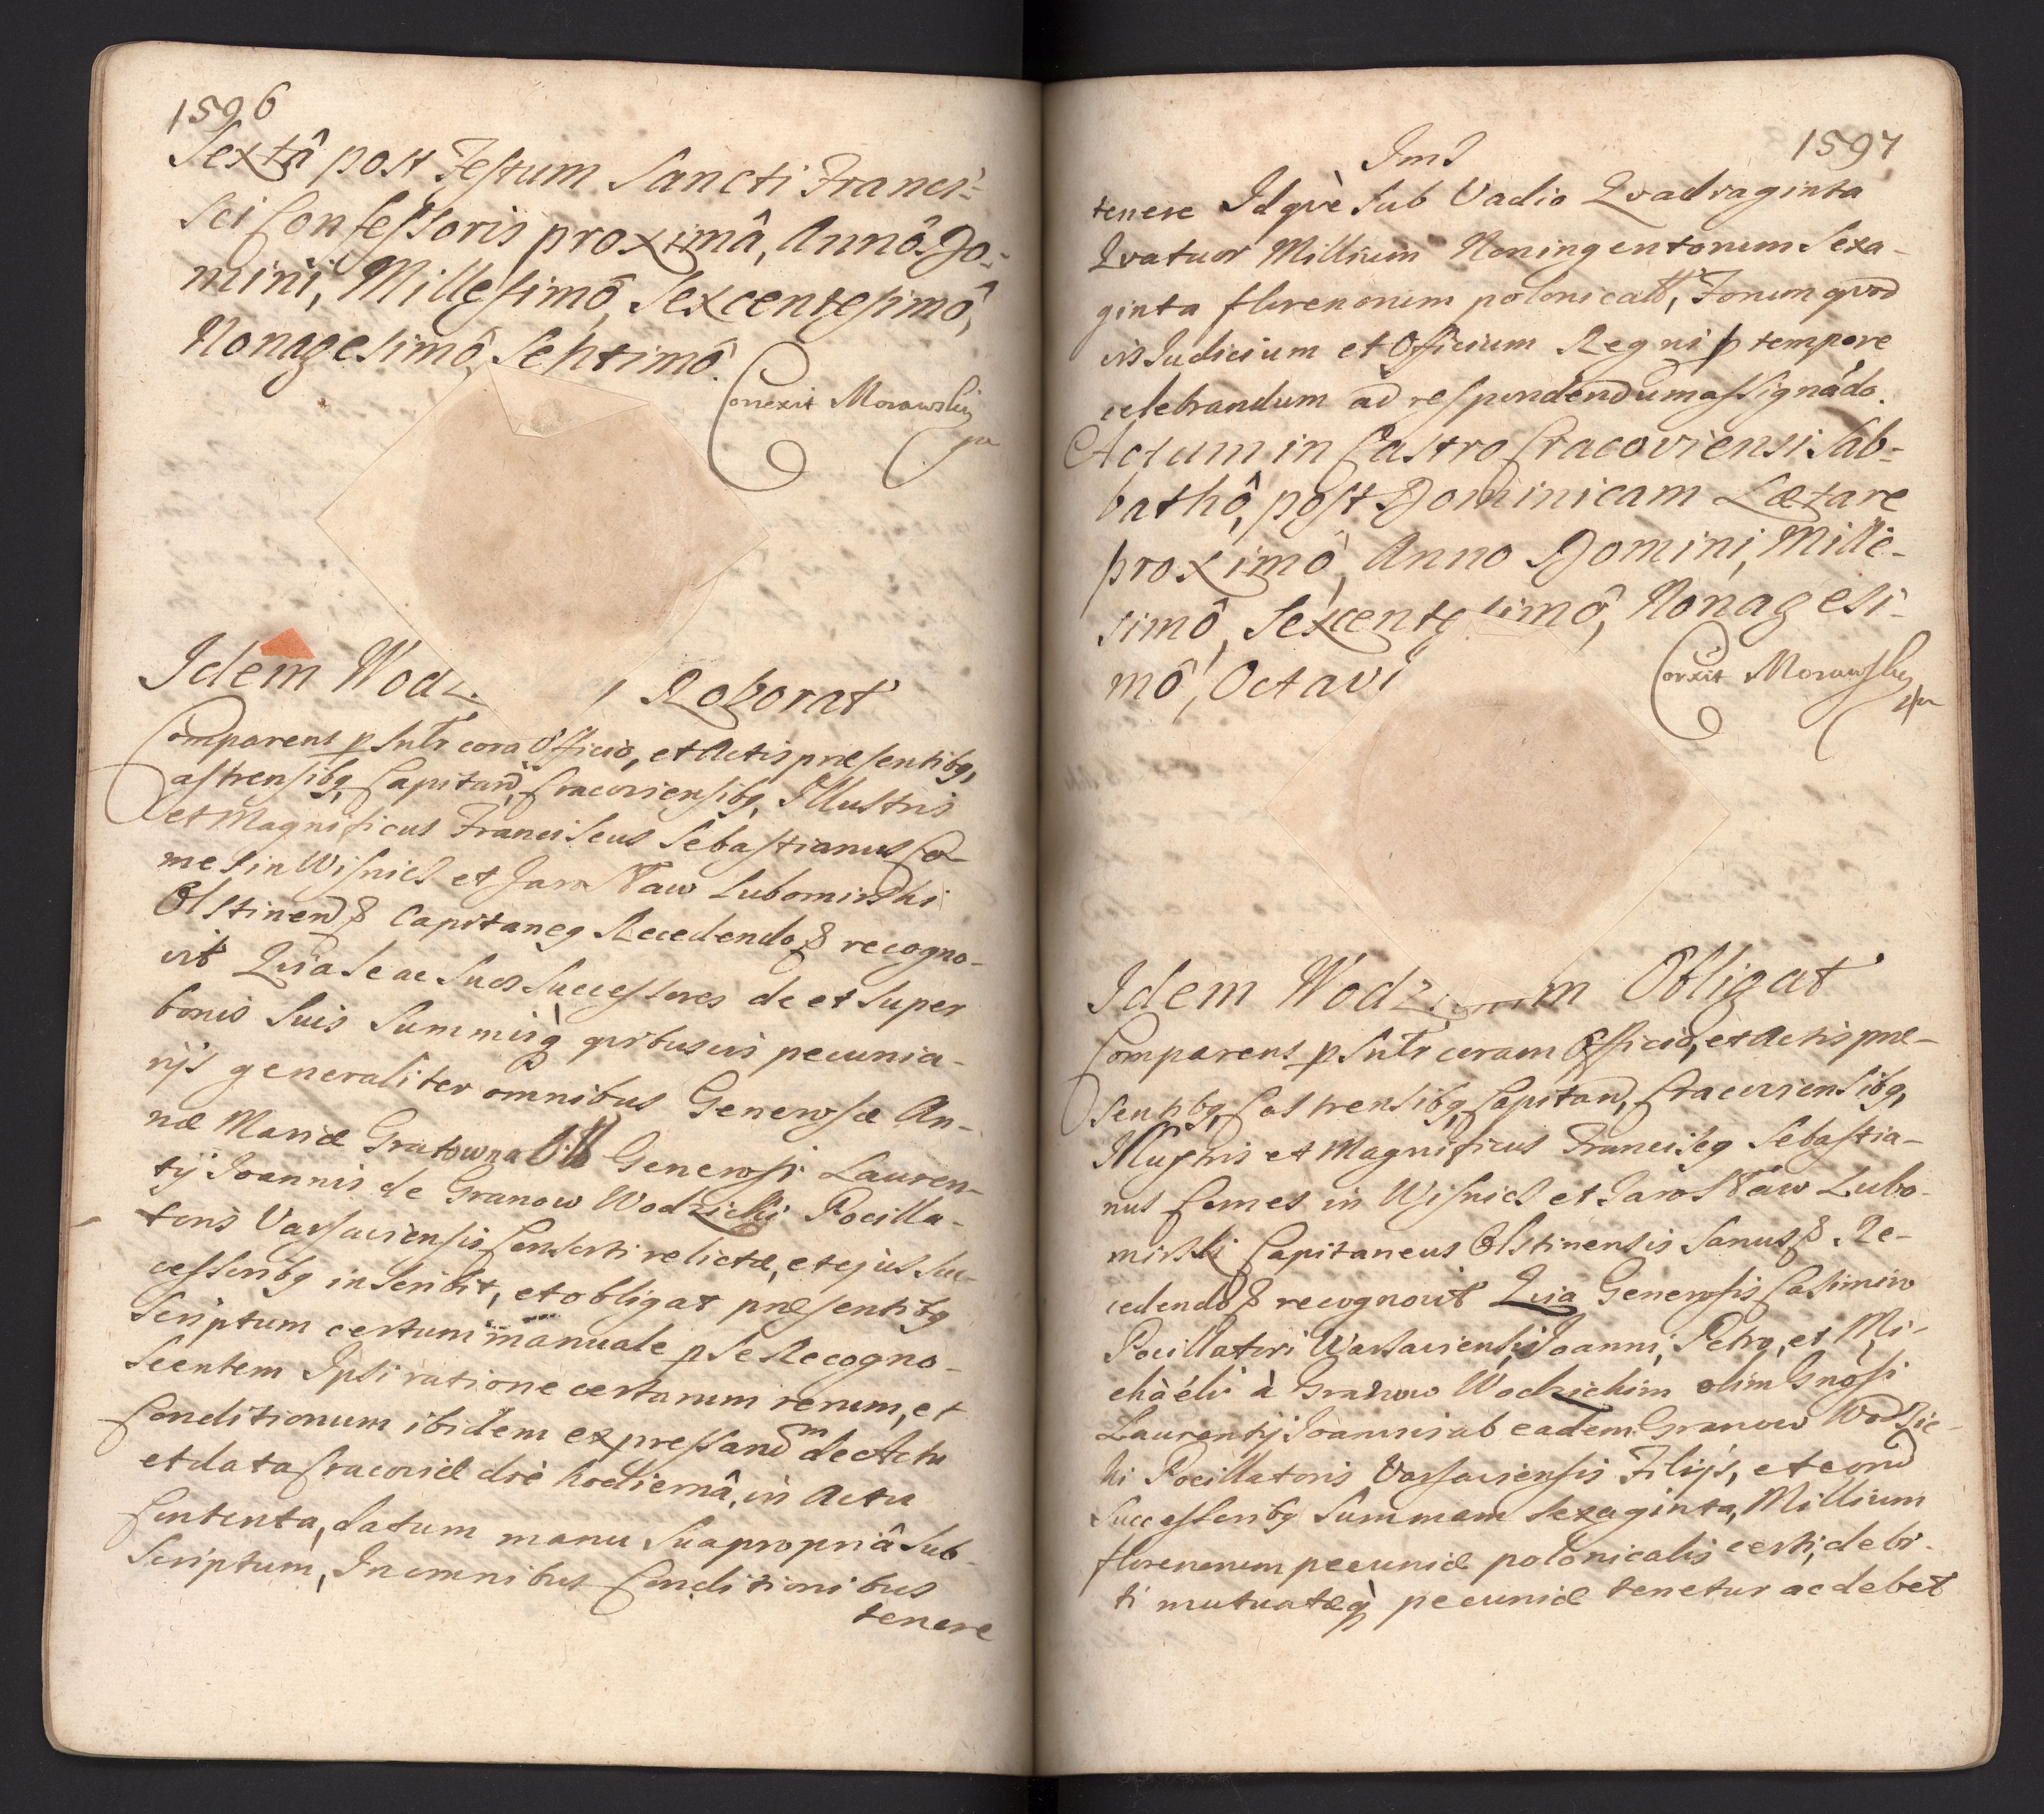 1596
Sextâ post Festum Sancti Franci=
sci Confessoris proximâ, Annô Do=
mini, Millesimô, Sexcentesimô,
Nonagesimô, Septimô.
Correxit Morawsky
Idem Wodz Roborat
Comparens psntr corã Officio, et Actis præsentibq,
Castrensibq, Capitand, Cracoviensibq, Illustris
et Magnificus Franciscus Sebastianus Co-
mes in Wisnicz et Jarosław Lubomirski
Olstinens Capitaneq Recedendo recogno-
vit Quia se ac suos Successores de et super
bonis suis Summisq quibusvis pecunia-
rijs generaliter omnibus Generosæ An-
næ Mariæ Gratowna Generosi Lauren-
tij Joannis de Granow Wodzicki Pocilla-
toris Varsaviensis Consorti relictæ, et ejus suc-
cessoribq inscribit, et obligat præsentibq
Scriptum certum manuale p se Recogno-
scentem Ipsi ratione certarum rerum, et
Conditionum ibidem expressand de Actu
et data Cracoviæ die hodiernâ, in Actu
Contenta, datum manu sua propriâ sub-
scriptum, In omnibus Conditionibus
tenere
1597
tenere Idquè sub Vadio Quadraginta
Quatuor Millium Noningentorum Sexa-
ginta florenorum polonicall, Forum quod
vis Judicium et Officium Regni p tempore
celebrandum ad respondendum assignãdo.
Actum in Castro Cracoviensi Sab=
bathô, post Dominicam Lætare
proximô, Anno Domini, Mille-
simô, Sexcentesimô, Nonagesi-
mô, Octavi
Correxit Morawsky
Idem Wodz m Obligat
Comparens psntr coram Officio, et Actis præ-
sentibq, Castrensibq, Capitand, Cracoviensibq,
Illustris et Magnificus Franciscq Sebastia-
nus Comes in Wisnicz et Jarosław Lubo-
mirski Capitaneus Olstinensis Sanus Re-
cedendo recognovit Quia Generosis Casimiro
Pocillatori Warsaviensi, Joanni, Petro, et Mi-
chàéli à Granow Wodzickim olim Gnosi
Laurentij Joannis ab eadem Granow Wodzic-
ki Pocillatoris Varsaviensis Filijs, et eord
Successoribq Summam Sexaginta, Millium
florenorum pecuniæ polonicalis certi, debi-
ti mutuatæq pecuniæ tenetur ac debet